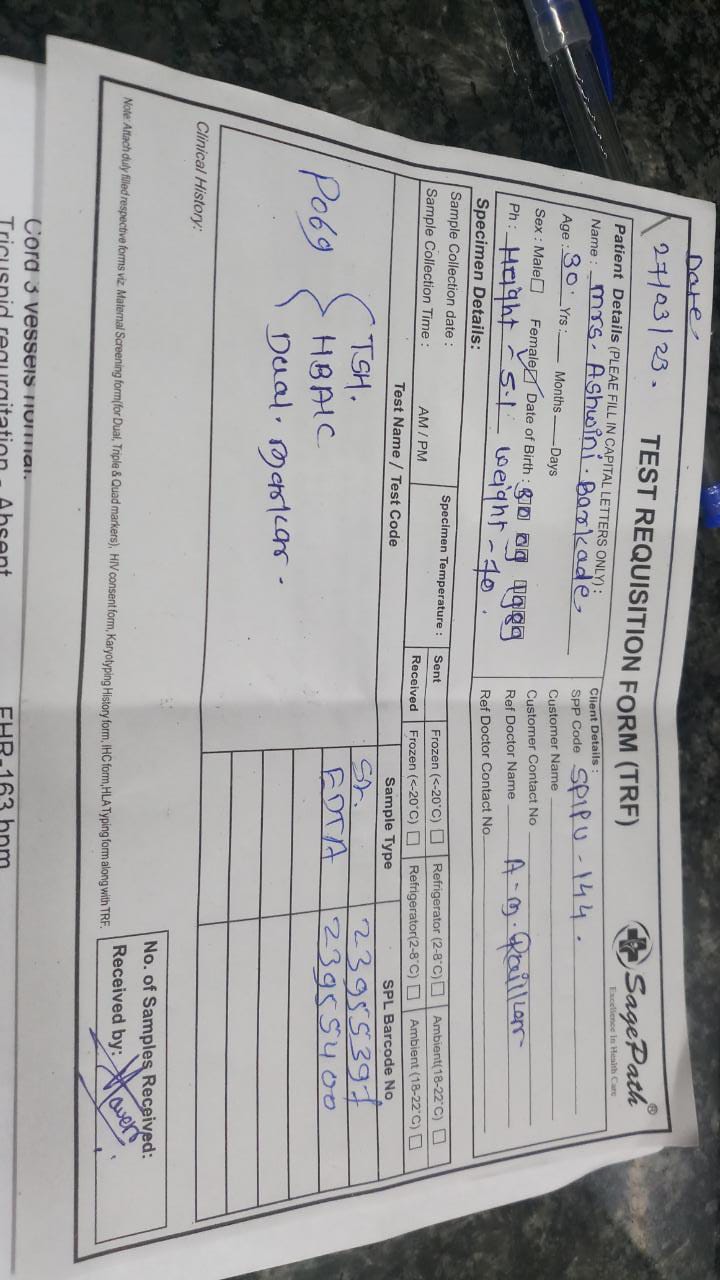 Date
27/03/23.
TEST REQUISITION FORM (TRF)
SagePath®
Excellence In Health Care
Patient Details (PLEAE FILL IN CAPITAL LETTERS ONLY):
Name : Mrs. Ashwini. Barkade
Age : 30. Yrs : Months Days
Sex : Male Female Date of Birth :
Ph : Height - 5.1 weight - 70.
Client Details :
SPP Code SPIPU - 144.
Customer Name
Customer Contact No
Ref Doctor Name
Ref Doctor Contact No.
Specimen Details:
Sample Collection date :
Sample Collection Time : AM / PM
Specimen Temperature :
Sent Frozen (<-20°C) Refrigerator (2-8°C) Ambient(18-22°C)
Received Frozen (<-20°C) Refrigerator(2-8°C) Ambient (18-22°C)
Test Name / Test Code Sample Type SPL Barcode No
TSH.
P069 HBA1C EDTA 23955400
Dual. Marker.
Clinical History:
No. of Samples Received:
Received by:
Note: Attach duly filled respective forms viz. Maternal Screening form(for Dual, Triple & Quad markers), HIV consent form, Karyotyping History form, IHC form, HLA Typing form along with TRF.
Cord 3 vessels normal.
Tricuspid regurgitation - Absent FHR-163 bpm